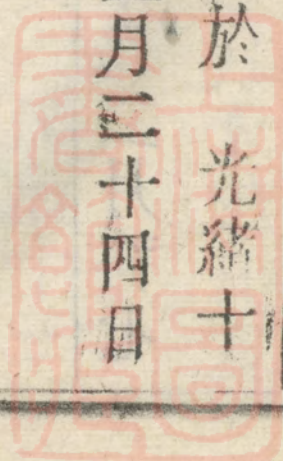 於 光緒十
月二十四日